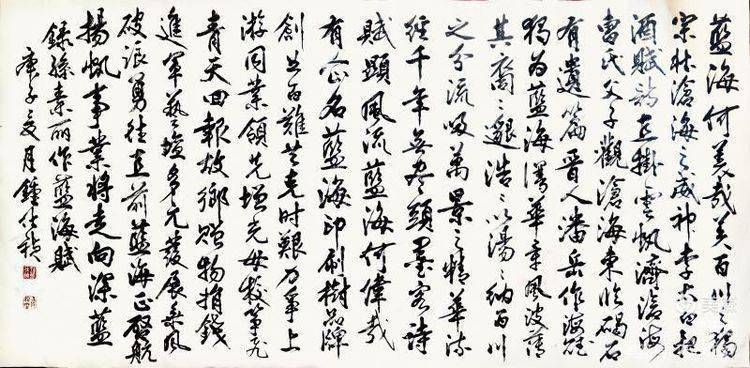 藍海何美哉美百川之
滄海之威神李太白
酒賦詩直掛雲帆濟滄海
曹氏父子觀滄海東臨碣石
有遺篇晋人潘岳作海賦
獨為藍海華章風波蕩
其邈浩之以湯之納百川
之分流吸萬景之精華流
經千年無盡頭墨客詩
賦顯風流藍海何偉哉
有企名藍海印刷樹品牌
創出百難共克時艱力爭上
游同業領先增光母校
青天回報故鄉贈物捐錢
進軍藝壇多元發展乘風
破浪勇往直前藍海正啟航
揚帆事業將走向深藍
錄孫素丽作藍海賦
庚子夏月鍾仕